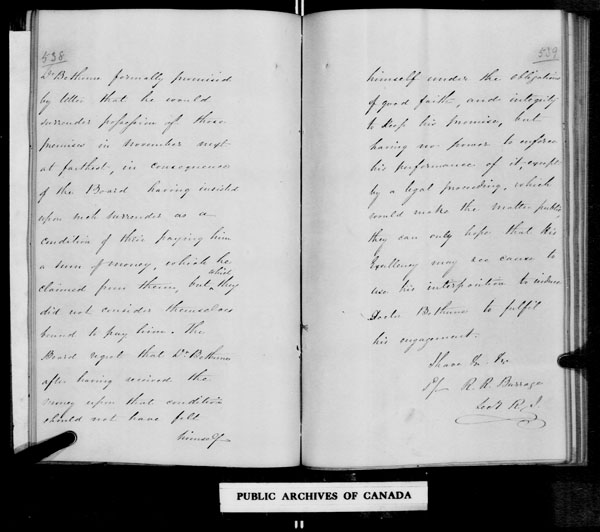 538
Dr Bethune formally promised
by letter that he would
surrender possession of these
premises in November next
at farthest, in consequence
of the Board having insisted
upon such surrender as a
condition of their paying him
a sum of money, which he
claimed from them, but which they
did not consider themselves
bound to pay him. The
Board regret that Dr Bethune
after having received the
money upon that condition
should not have felt
himself
539
himself under the obligation
of good faith, and integrity
to keep his promise, but
having no power to enforce
his performance of it, except
by a legal proceeding, which
would make the matter public,
they can only hope that His
Excellency may see cause to
use his interposition to induce
Doctor Bethune to fulfil
his engagement.
I have &c &c
R. R. Burrage
Secy R. I.
PUBLIC ARCHIVES OF CANADA